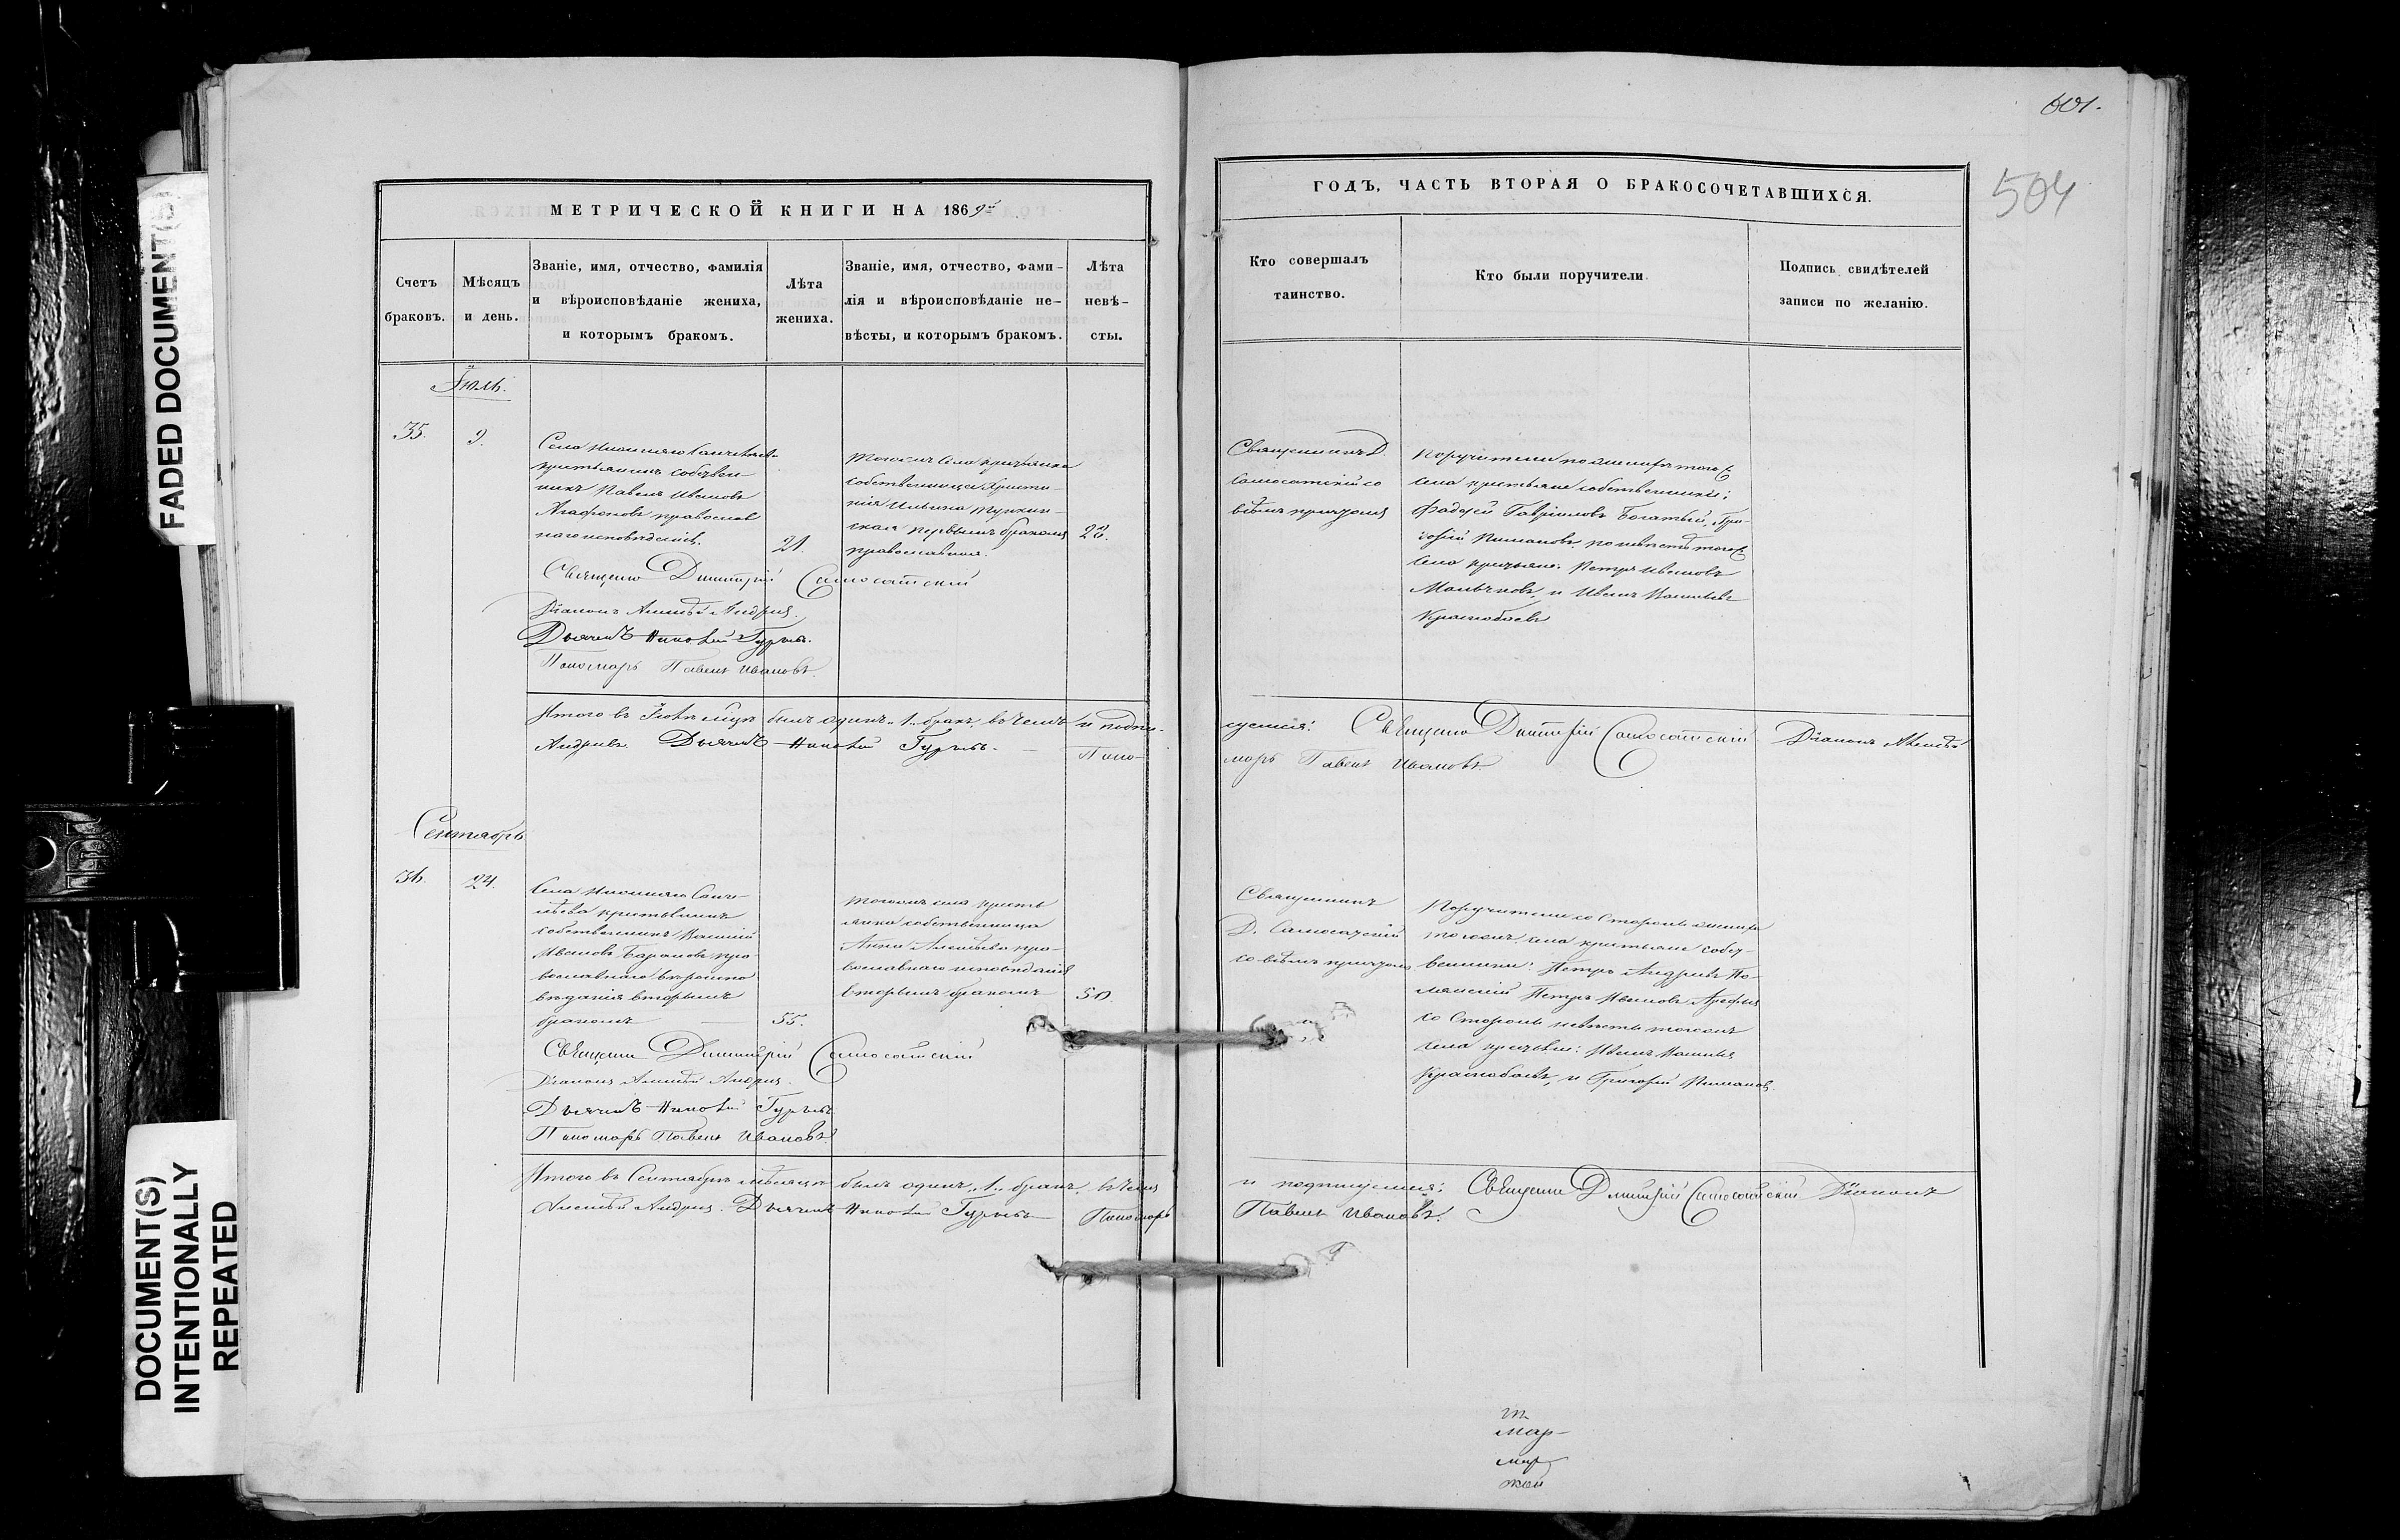 601.
504
FADED DOCUMENT(S)
DOCUMENT(S)
INTENTIONALLY
REPEATED
МЕТРИЧЕСКОЙ КНИГИ НА 1869й
Счетъ
браковъ.
Мѣсяцъ
и день.
Званіе, имя, отчество, фамилія
и вѣроисповѣданіе жениха,
и которымъ бракомъ.
Лѣта
жениха.
Званіе, имя, отчество, фами-
лія и вѣроисповѣданіе не-
вѣсты, и которымъ бракомъ.
Лѣта
невѣ-
сты.
Іюль.
35.
9.
Села
крестьянинъ собствен-
никъ Павелъ Ивановъ
Агафоновъ православ
наго исповѣданія.
21.
тогожъ села крестьянка
собственница Христи-
нія Ильина
ская первымъ бракомъ
православная.
22.
Священно Димитрій Самосатскій
Діаконъ Алексѣй Андреевъ.
Дьячекъ Николай Гурьевъ.
Пономарь Павелъ Ивановъ.
Итого въ Іюлѣ мѣцѣ былъ одинъ „1„ бракъ, въ чемъ и подпи-
Андреевъ. Дьячекъ Николай Гурьевъ.
Поно-
Сентябрь
36.
24.
Села
крестьянинъ
собственникъ Василій
Ивановъ Барановъ пра-
вославнаго вѣроиспо
вѣданія вторымъ
бракомъ
55.
тогожъ села кресть
янка собственница
Анна Алексѣева пра-
вославнаго исповѣданія
вторымъ бракомъ
50.
Священно Димитрій Самосатскій
Діаконъ Алексѣй Андреевъ.
Дьячекъ Николай Гурьевъ
Пономарь Павелъ Ивановъ.
Итого въ Сентябрѣ мѣсяцѣ былъ одинъ „1„ бракъ, въ чемъ
Алексѣй Андреевъ. Дьячекъ Николай Гурьевъ Пономарь
ГОДЪ, ЧАСТЬ ВТОРАЯ О БРАКОСОЧЕТАВШИХСЯ.
Кто совершалъ
таинство.
Кто были поручители
Подпись свидѣтелей
записи по желанію.
Священникъ Д.
Самосатскій со
всѣмъ причтомъ
Поручители по женихѣ того
села крестьяне собственники:
Фадей Гавриловъ Богатый, Гри-
горій по невѣстѣ того
села крестьяне: Петръ Ивановъ
и Иванъ Васильевъ
Краснобаевъ
суемся: Священно Димитрій Самосатскій Діаконъ Алексѣй
марь Павелъ Ивановъ.
Священникъ
Д. Самосатскій
со всѣмъ причтомъ
Поручители со стороны жениха
тогожъ села крестьяне собст-
венники: Петръ Андреевъ
Петръ Ивановъ
со стороны невѣсты тогожъ
села крестьяне: Иванъ Васильевъ
Краснобаевъ, и Григорій
и подписуемся: Священно Димитрій Самосатскій Діаконъ
Павелъ Ивановъ.